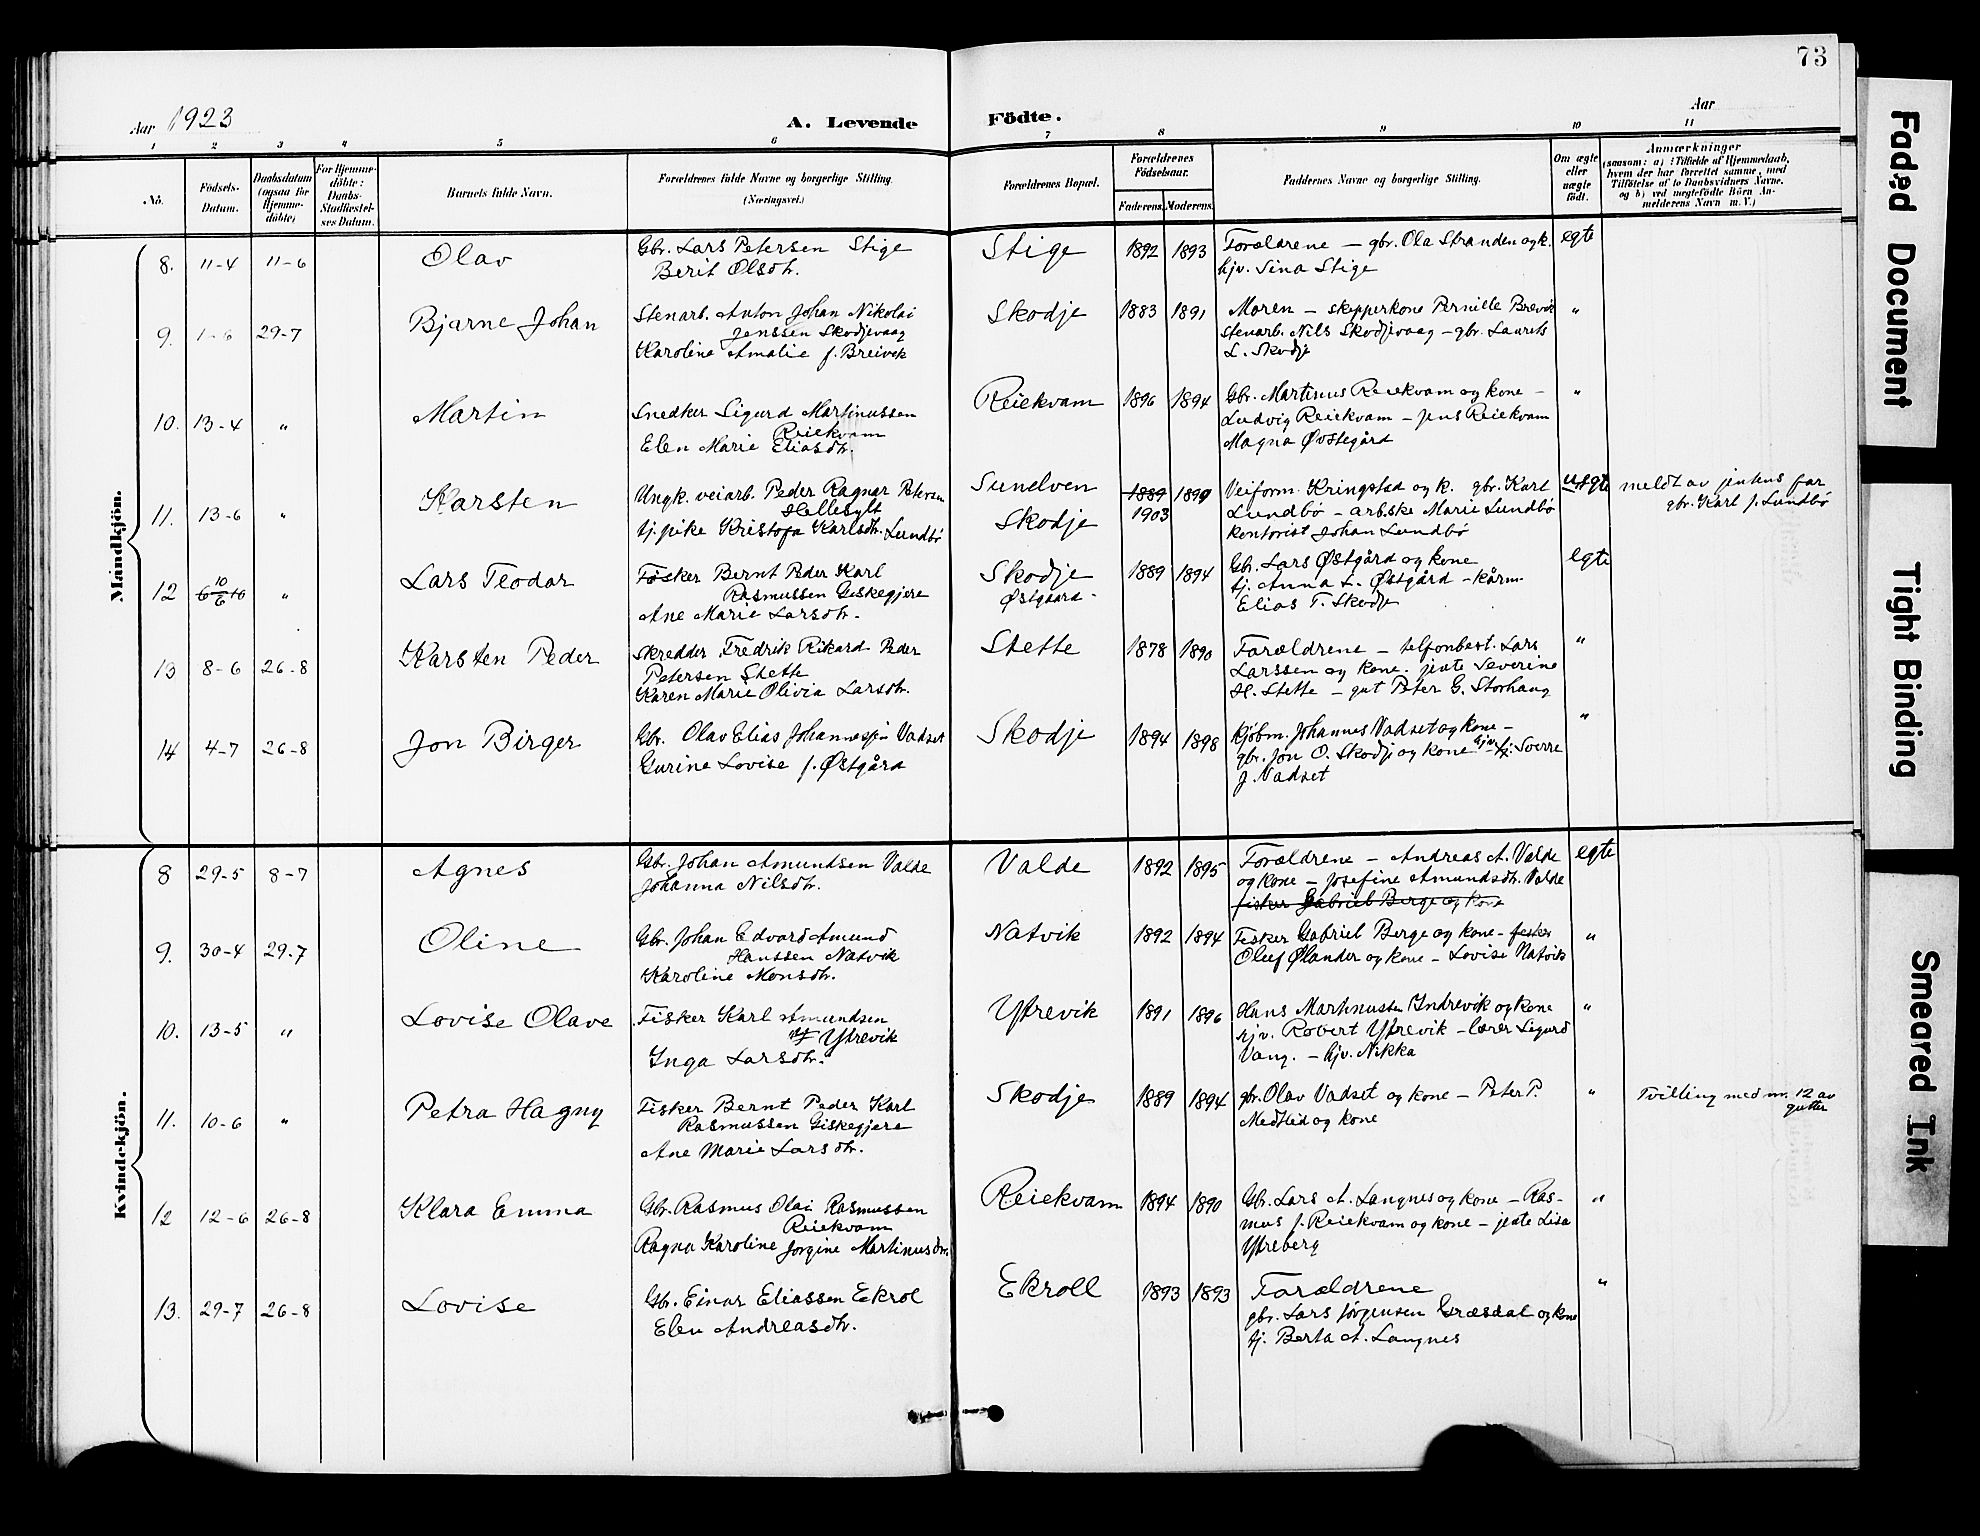 73
Aar 1923
A. Levende Födte.
Aar
1 2 3 4 5 6 7 8 9 10 11
No.
Födsels-
Datum.
Daabsdatum
(ogsaa for
Hjemme-
döbte)
For Hjemme-
döbte:
Daabs-
Stadfæstel-
ses Datum.
Barnets fulde Navn.
Forældrenes fulde Navne og borgerlige Stilling.
(Næringsvei.)
Forældrenes Bopæl.
Forældrenes
Födselsaar.
Faderens. Moderens.
Faddernes Navne og borgerlige Stilling.
Om ægte
eller
uægte
födt.
Anmærkninger
(saasom: a) i Tilfælde af Hjemmedaab,
hvem der har forrettet samme, med
Tilföielse af to Daabsvidners Navne,
og b) ved uægtefödte Börn An-
melderens Navn m. V.)
Mandkjön.
8. 11-4 11-6 Olav
Gbr. Lars Petersen Stige
Berit Olsdtr.
Stige 1892 1893
Forældrene — gbr. Ola Stranden og k.
hjv. Sina Stige
egte
9. 1-6 29-7 Bjarne Johan
Stenarb. Anton Johan Nikolai
Jenssen Skodjevaag
Karoline Amalie f. Breivik
Skodje 1883 1891
Moren — skipperkone Pernille Brevik
stenarb. Nils Skodjevaag — gbr. Laurits
L. Skodje
"
10. 13-4 " Martin
Snedker Sigurd Martinussen
Reiekvam
Elen Marie Eliasdtr.
Reiekvam 1896 1894
Gbr. Martinus Reiekvam og kone —
Ludvig Reiekvam — Jens Reiekvam
Magna Øvstegård
"
11. 13-6 " Karsten
Ungk. veiarb. Peder Ragnar Petersen
Hellesylt
tj. pike Kristofa Karlsdtr. Lundbø
Sunelven
Skodje
1889 1899
1903
Veiform. Kringstad og k. gbr. Karl
Lundbø — arbske Marie Lundbø
kontorist Johan Lundbø
uegte
meldt av jentens far
gbr. Karl J. Lundbø
12 6 10/6 10 " Lars Teodor
Fisker Bernt Peder Karl
Rasmussen Giskegjere
Ane Marie Larsdtr.
Skodje
Østgaard -
1889 1894
Gbr. Lars Østgård og kone
tj. Anna L. Østgård — kårm.
Elias T. Skodje
egte
13 8-6 26-8 Karsten Peder
Skredder Fredrik Rikard Peder
Petersen Stette
Karen Marie Olivia Larsdtr.
Stette 1878 1890
Forældrene — telfonbest. Lars
Larssen og kone. jente Severine
H. Stette — gut Peter G. Storhaug
"
14 4-7 26-8 Jon Birger
Gbr. Olav Elias Johannessen Vadset
Gurine Lovise f. Østgård
Skodje 1894 1898
Kjøbm. Johannes Vadset og kone —
gbr. Jon O. Skodje og kone hjv. tj. Sverre
J. Vadset
"
Kvindekjön.
8 29-5 8-7 Agnes
Gbr. Johan Amundsen Valde
Johanna Nilsdtr.
Valde 1892 1895
Forældrene — Andreas A. Valde
og kone — Josefine Amundsdtr. Valde
fisker Gabriel Berge og kone
egte
9. 30-4 29-7 Oline
Gbr. Johan Edvard Amund
Hanssen Natvik
Karoline Monsdtr.
Natvik 1892 1894
Fisker Gabriel Berge og kone - fisker
Oluf Ølander og kone — Lovise Natvik
"
10. 13-5 " Lovise Olave
Fisker Karl Amundsen
Ytrevik
Inga Larsdtr.
Ytrevik 1891 1896
Hans Martinussen Indrevik og kone
hjv. Robert Ytrevik — lærer Sigurd
Vang. — hjv. Nikka
"
11. 10-6 " Petra Hagny
Fisker Bernt Peder Karl
Rasmussen Giskegjere
Ane Marie Larsdtr.
Skodje 1889 1894
gbr. Olav Vadset og kone — Peter P.
Medlid og kone
"
Tvilling med nr. 12 av
gutter
12 12-6 26-8 Klara Emma
Gbr. Rasmus Olai Rasmussen
Reiekvam
Ragna Karoline Jorgine Martinusdtr.
Reiekvam 1894 1890
Gbr. Lars A. Langnes og kone — Ras-
mus J. Reiekvam og kone — jente Lisa
Ytreberg
"
13. 29-7 26-8 Lovise
Gbr. Einar Eliassen Ekrol
Elen Andreasdtr.
Ekroll 1893 1893
Forældrene
gbr. Lars Jørgensen Græsdal og kone
tj. Berta A. Langnes
"
Faded Document
Tight Binding
Smeared Ink